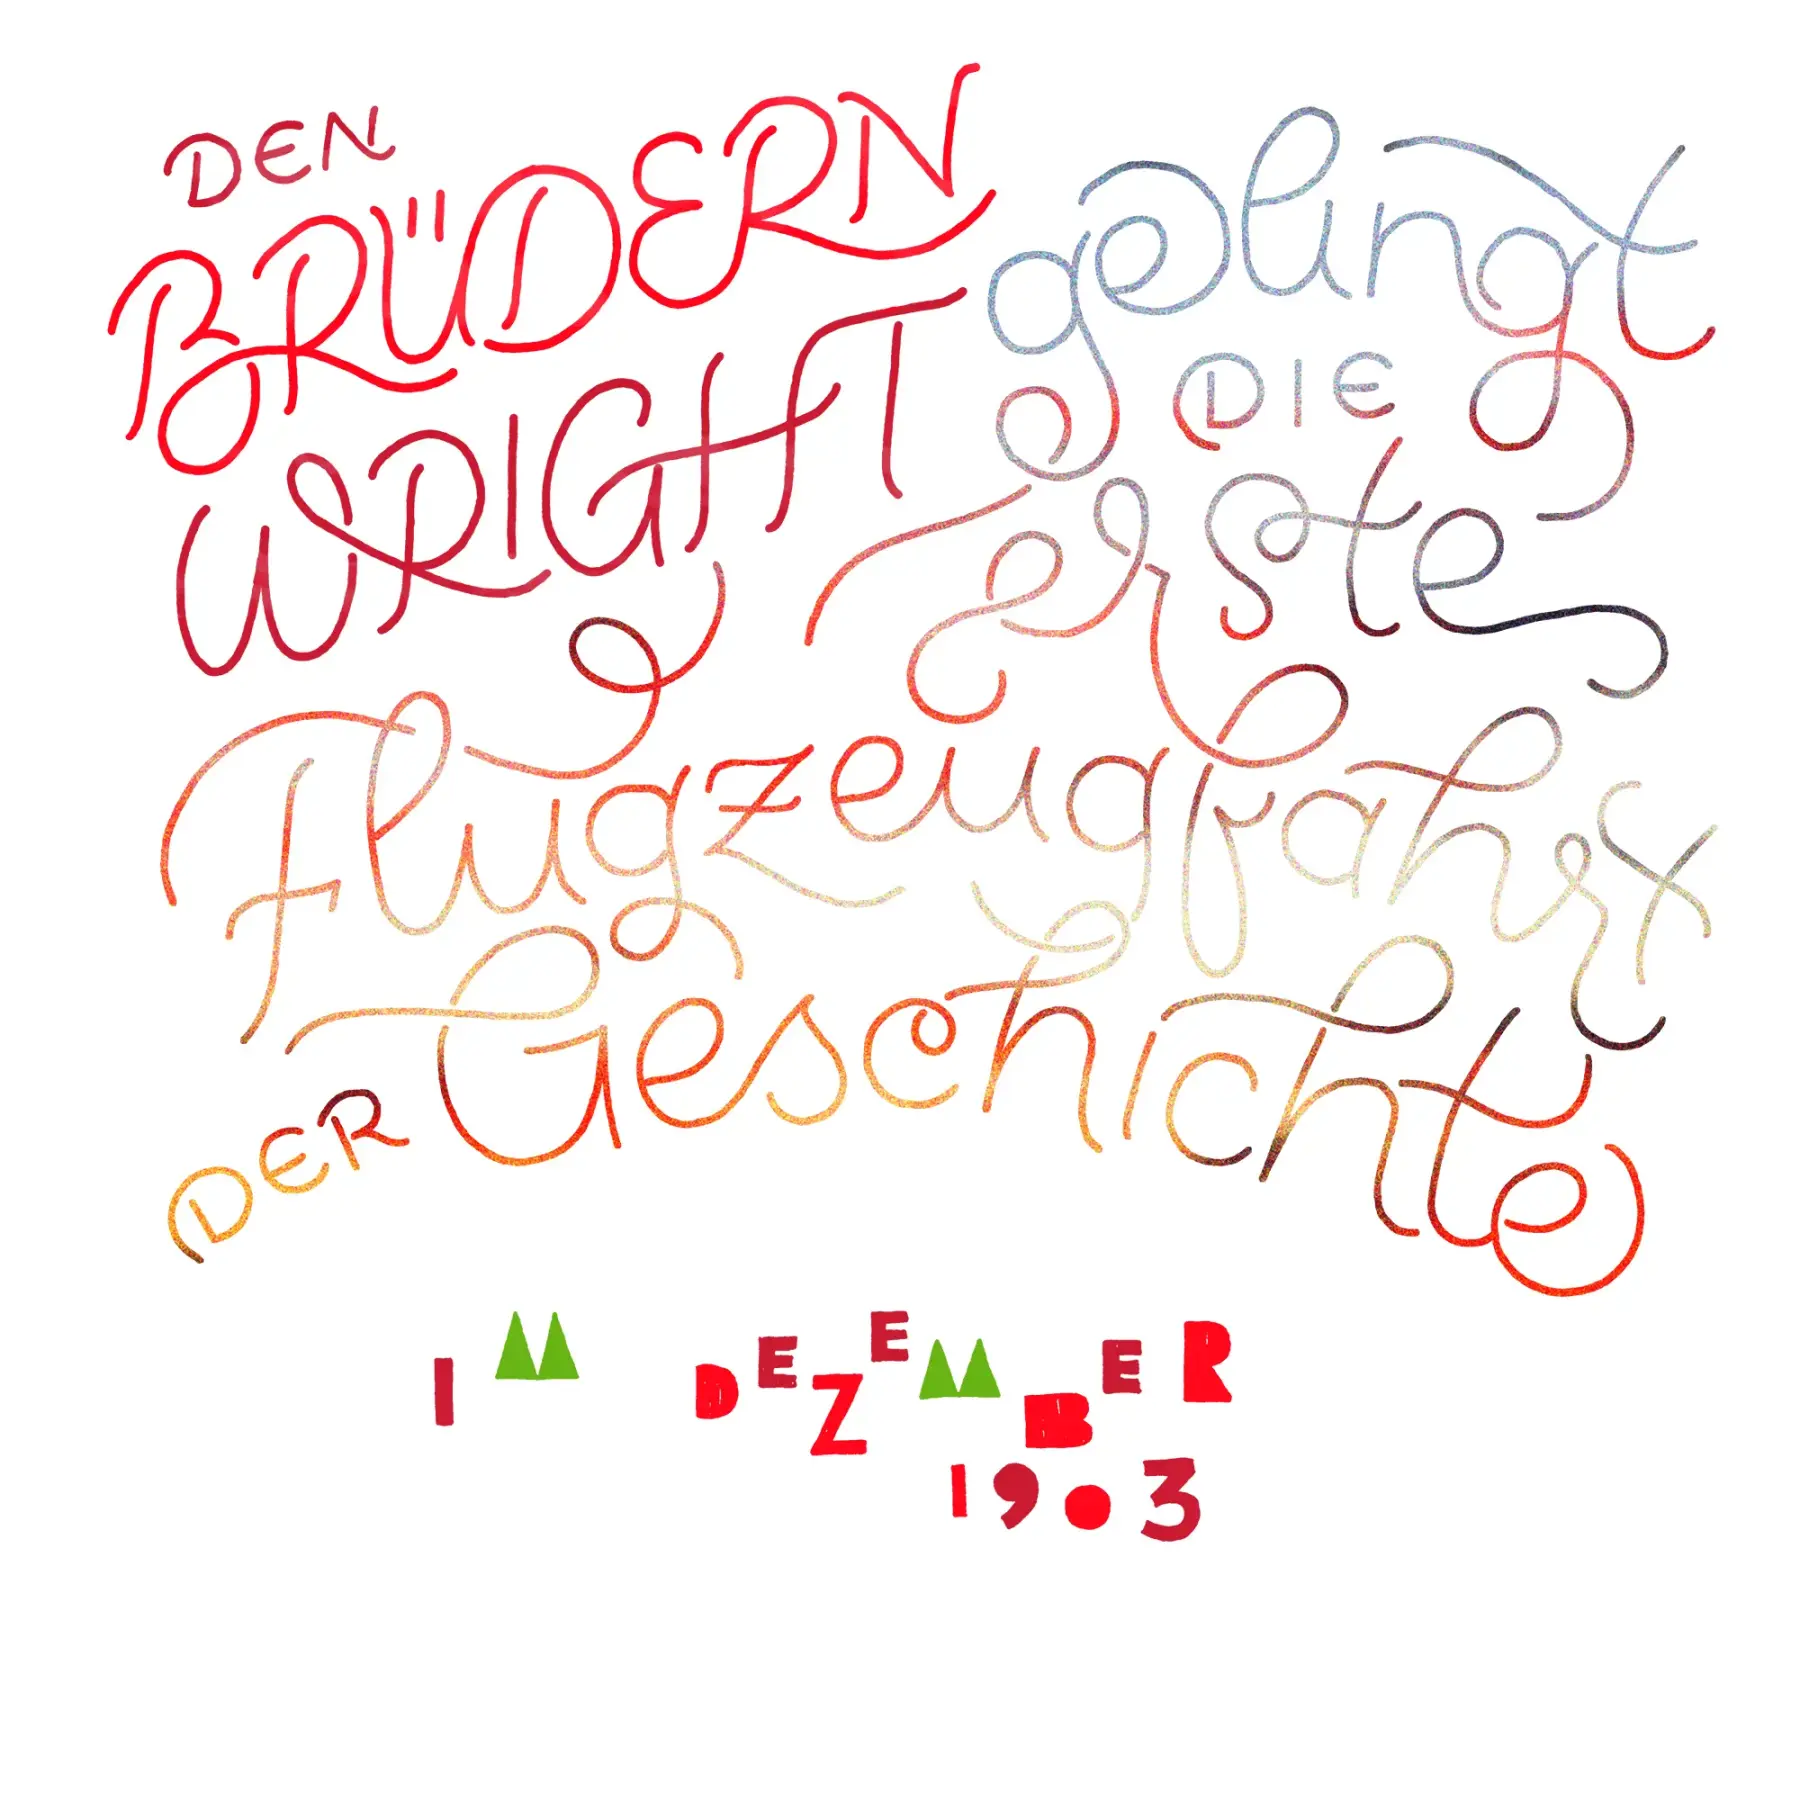 DEN
BRÜDERN
WRIGHT
gelingt
DIE
erste
Flugzeugfahrt
DER Geschichte
IM DEZEMBER
1903